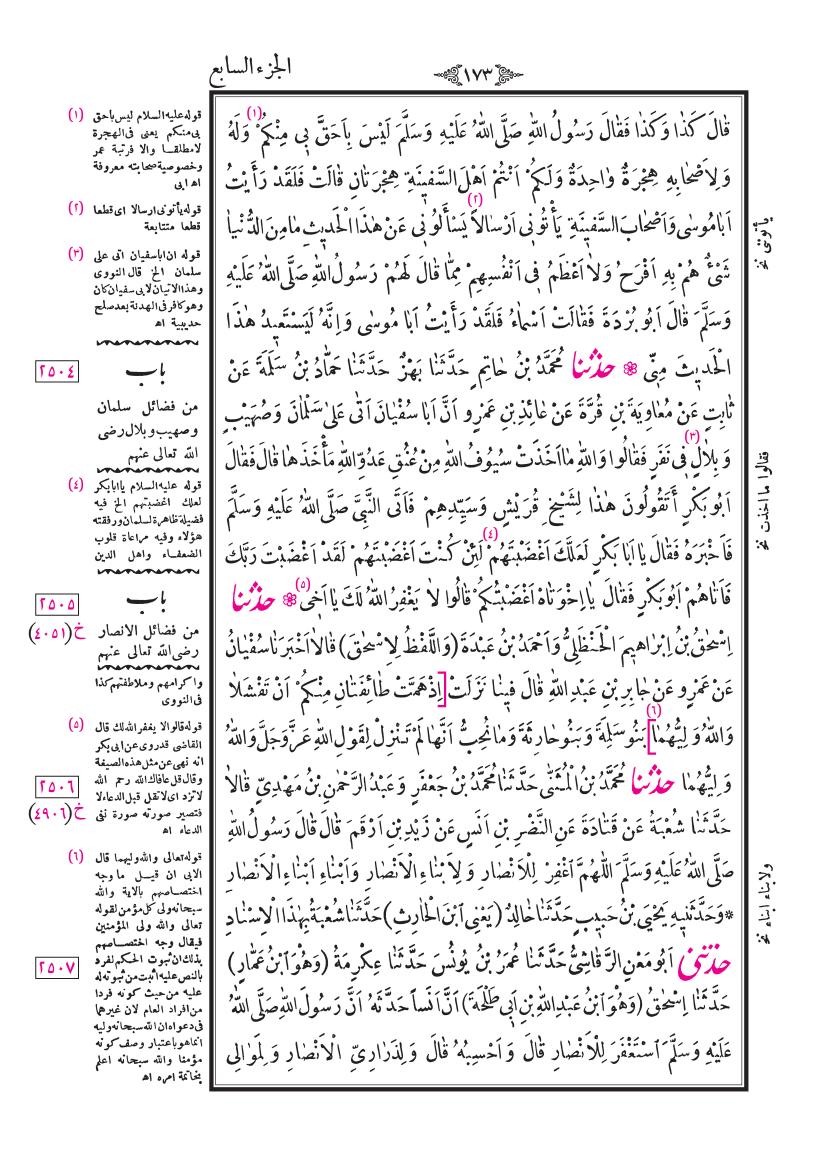 الجزء السابع
١٧٣
قَالَ كَذَا وَكَذَا فَقَالَ رَسُولُ اللهِ صَلَّى اللهُ عَلَيْهِ وَسَلَّمَ لَيْسَ بِاَحَقَّ بِى مِنْكُمْ (١) وَلَهُ
وَلِاَصْحَابِهِ هِجْرَةٌ وَاحِدَةٌ وَلَكُمْ اَنْتُمْ اَهْلَ السَّفِينَةِ هِجْرَتَانِ قَالَتْ فَلَقَدْ رَأَيْتُ
اَبَا مُوسَى وَاَصْحَابَ السَّفِينَةِ يَأْتُونِى اَرْسَالًا (٢) يَسْأَلُونِى عَنْ هٰذَا الْحَدِيثِ مَا مِنَ الدُّنْيَا
شَىْءٌ هُمْ بِهِ اَفْرَحُ وَلَا اَعْظَمُ فِى اَنْفُسِهِمْ مِمَّا قَالَ لَهُمْ رَسُولُ اللهِ صَلَّى اللهُ عَلَيْهِ
وَسَلَّمَ قَالَ اَبُو بُرْدَةَ فَقَالَتْ اَسْمَاءُ فَلَقَدْ رَأَيْتُ اَبَا مُوسَى وَاِنَّهُ لَيَسْتَعِيدُ هٰذَا
الْحَدِيثَ مِنِّى ❁ حَدَّثَنَا مُحَمَّدُ بْنُ حَاتِمٍ حَدَّثَنَا بَهْزٌ حَدَّثَنَا حَمَّادُ بْنُ سَلَمَةَ عَنْ
ثَابِتٍ عَنْ مُعَاوِيَةَ بْنِ قُرَّةَ عَنْ عَائِذِ بْنِ عَمْرٍو اَنَّ اَبَا سُفْيَانَ اَتَى عَلَى سَلْمَانَ وَصُهَيْبٍ
وَبِلَالٍ (٣) فِى نَفَرٍ فَقَالُوا وَاللهِ مَا اَخَذَتْ سُيُوفُ اللهِ مِنْ عُنُقِ عَدُوِّ اللهِ مَأْخَذَهَا قَالَ فَقَالَ
اَبُو بَكْرٍ أَتَقُولُونَ هٰذَا لِشَيْخِ قُرَيْشٍ وَسَيِّدِهِمْ فَاَتَى النَّبِىَّ صَلَّى اللهُ عَلَيْهِ وَسَلَّمَ
فَاَخْبَرَهُ فَقَالَ يَا اَبَا بَكْرٍ لَعَلَّكَ اَغْضَبْتَهُمْ (٤) لَئِنْ كُنْتَ اَغْضَبْتَهُمْ لَقَدْ اَغْضَبْتَ رَبَّكَ
فَاَتَاهُمْ اَبُو بَكْرٍ فَقَالَ يَا اِخْوَتَاهْ اَغْضَبْتُكُمْ قَالُوا لَا يَغْفِرُ اللهُ لَكَ يَا اَخِى (٥) ❁ حَدَّثَنَا
اِسْحٰقُ بْنُ اِبْرَاهِيمَ الْحَنْظَلِىُّ وَاَحْمَدُ بْنُ عَبْدَةَ (وَاللَّفْظُ لِاِسْحٰقَ) قَالَا اَخْبَرَنَا سُفْيَانُ
عَنْ عَمْرٍو عَنْ جَابِرِ بْنِ عَبْدِ اللهِ قَالَ فِينَا نَزَلَتْ [اِذْ هَمَّتْ طَائِفَتَانِ مِنْكُمْ اَنْ تَفْشَلَا
وَاللهُ وَلِيُّهُمَا] (٦) بَنُو سَلِمَةَ وَبَنُو حَارِثَةَ وَمَا نُحِبُّ اَنَّهَا لَمْ تَنْزِلْ لِقَوْلِ اللهِ عَزَّ وَجَلَّ وَاللهُ
وَلِيُّهُمَا حَدَّثَنَا مُحَمَّدُ بْنُ الْمُثَنَّى حَدَّثَنَا مُحَمَّدُ بْنُ جَعْفَرٍ وَعَبْدُ الرَّحْمٰنِ بْنُ مَهْدِىٍّ قَالَا
حَدَّثَنَا شُعْبَةُ عَنْ قَتَادَةَ عَنِ النَّضْرِ بْنِ اَنَسٍ عَنْ زَيْدِ بْنِ اَرْقَمَ قَالَ قَالَ رَسُولُ اللهِ
صَلَّى اللهُ عَلَيْهِ وَسَلَّمَ اللّٰهُمَّ اغْفِرْ لِلْاَنْصَارِ وَلِاَبْنَاءِ الْاَنْصَارِ وَاَبْنَاءِ اَبْنَاءِ الْاَنْصَارِ
*وَحَدَّثَنِيهِ يَحْيَى بْنُ حَبِيبٍ حَدَّثَنَا خَالِدٌ (يَعْنِى ابْنَ الْحَارِثِ) حَدَّثَنَا شُعْبَةُ بِهٰذَا الْاِسْنَادِ
حَدَّثَنِى اَبُو مَعْنٍ الرَّقَاشِىُّ حَدَّثَنَا عُمَرُ بْنُ يُونُسَ حَدَّثَنَا عِكْرِمَةُ (وَهُوَ ابْنُ عَمَّارٍ)
حَدَّثَنَا اِسْحٰقُ (وَهُوَ ابْنُ عَبْدِ اللهِ بْنِ اَبِى طَلْحَةَ) اَنَّ اَنَسًا حَدَّثَهُ اَنَّ رَسُولَ اللهِ صَلَّى اللهُ
عَلَيْهِ وَسَلَّمَ اسْتَغْفَرَ لِلْاَنْصَارِ قَالَ وَاَحْسِبُهُ قَالَ وَلِذَرَارِىِّ الْاَنْصَارِ وَلِمَوَالِى
يأتونى نخ
فقالوا ما اخذت نخ
ولابناء ابناء نخ
(١) قوله عليه السلام ليس باحق
بى منكم يعنى فى الهجرة
لا مطلقا والا فرتبة عمر
وخصوصية صحابته معروفة
اه ابى
(٢) قوله يأتونى ارسالا اى قطعا
قطعا متتابعة
(٣) قوله ان اباسفيان اتى على
سلمان الخ قال النووى
وهذا الاتيان لابى سفيان كان
وهو كافر فى الهدنة بعد صلح
حديبية اه
باب
٢٥٠٤
من فضائل سلمان
وصهيب وبلال رضى
الله تعالى عنهم
(٤) قوله عليه السلام يا ابابكر
لعلك اغضبتهم الخ فيه
فضيلة ظاهرة لسلمان ورفقته
هؤلاء وفيه مراعاة قلوب
الضعفاء واهل الدين
باب
٢٥٠٥
من فضائل الانصار
خ (٤٠٥١)
رضى الله تعالى عنهم
واكرامهم وملاطفتهم كذا
فى النووى
(٥) قوله قالوا لا يغفر الله لك قال
القاضى قدروى عن ابى بكر
انه نهى عن مثل هذه الصيغة
وقال قل عافاك الله رحم الله
لا تزد اى لا تقل قبل الدعاء لا
فتصير صورته صورة نفى
الدعاء اه
٢٥٠٦
خ (٤٩٠٦)
(٦) قوله تعالى والله وليهما قال
الابى ان قيل ما وجه
اختصاصهم بالاية والله
سبحانه ولى كل مؤمن لقوله
تعالى والله ولى المؤمنين
فيقال وجه اختصاصهم
بذلك ان ثبوت الحكم لفرد
بالنص عليه اثبت من ثبوته له
عليه من حيث كونه فردا
من افراد العام لان غيرهما
فى دعواه ان الله سبحانه وليه
انما هو باعتبار وصف كونه
مؤمنا والله سبحانه اعلم
بخاتمة امره اه
٢٥٠٧